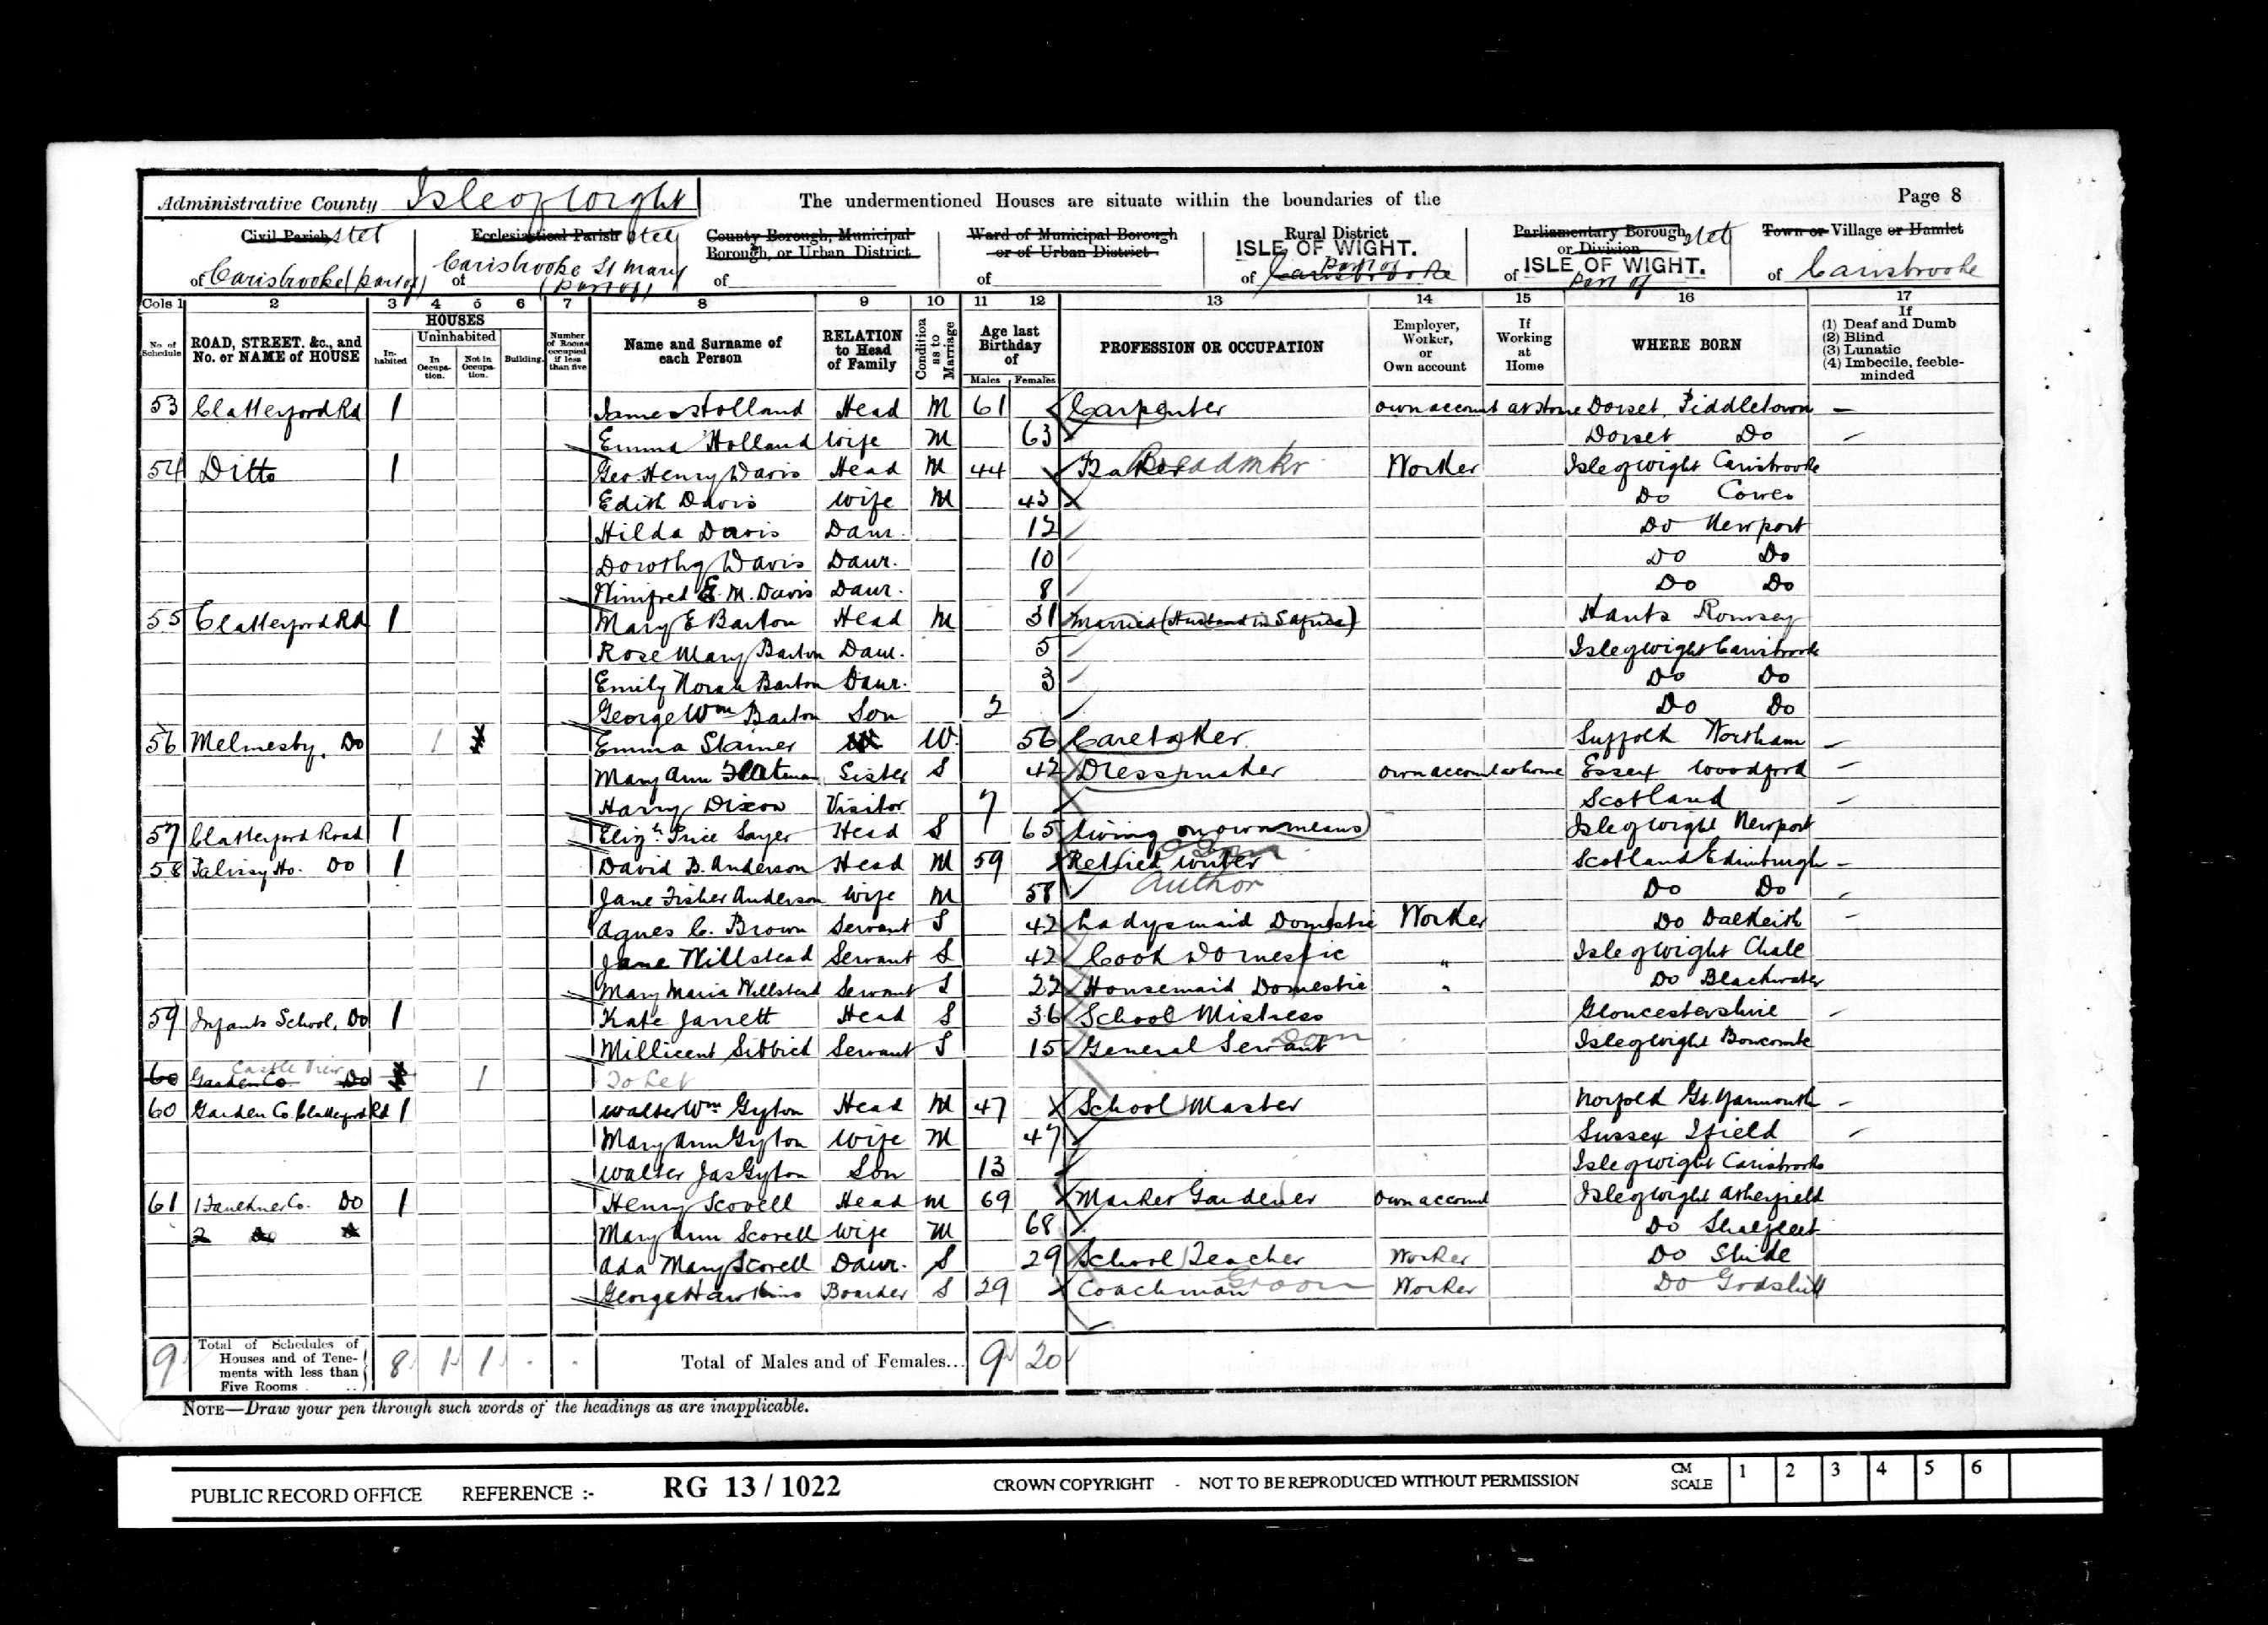 Administrative County Isle of Wight The undermentioned Houses are situate within the boundaries of the Page 8
Civil Parish stet Ecclesiastical Parish stet County Borough, Municipal Borough, or Urban District Ward of Municipal Borough or of Urban District Rural District ISLE OF WIGHT. Parliamentary Borough, stet or Division ISLE OF WIGHT. Town or Village or Hamlet
of Carisbrooke (part of) of Carisbrooke St Mary (part of) of of of part of Carisbrooke of Part of of Carisbrooke
Cols 1 2 3 4 5 6 7 8 9 10 11 12 13 14 15 16 17
No. of Schedule ROAD, STREET, &c., and No. or NAME of HOUSE HOUSES Inhabited Uninhabited In Occupation. Not in Occupation. Building. Number of Rooms occupied if less than five Name and Surname of each Person RELATION to Head of Family Condition as to Marriage Age last Birthday of Males Females PROFESSION OR OCCUPATION Employer, Worker, or Own account If Working at Home WHERE BORN If (1) Deaf and Dumb (2) Blind (3) Lunatic (4) Imbecile, feeble-minded
53 Clatterford Rd 1 James Holland Head M 61 Carpenter own account at home Dorset, Piddletown —
Emma Holland Wife M 63 Dorset Do
54 Ditto 1 Geo. Henry Davis Head M 44 Baker Breadmkr Worker Isle of Wight Carisbrooke
Edith Davis Wife M 43 Do Cowes
Hilda Davis Daur. 12 Do Newport
Dorothy Davis Daur. 10 Do Do
Winifred E. M. Davis Daur. 8 Do Do
55 Clatterford Rd 1 Mary E Barton Head M 31 Married (Husband in S Africa) Hants Romsey
Rose Mary Barton Daur. 5 Isle of Wight Carisbrooke
Emily Norah Barton Daur. 3 Do Do
George Wm Barton Son 2 Do Do
56 Melmesby. Do 1 Emma Stainer W. 56 Caretaker Suffolk Wortham —
Mary Ann Sister S 42 Dressmaker own account at home Essex Woodford —
Harry Dixon Visitor 7 Scotland —
57 Clatterford Road 1 Elizth Price Sayer Head S 65 Living on own means Isle of Wight Newport
58 Ho. Do 1 David B. Anderson Head M 59 Retired Writer Scotland Edinburgh —
Jane Fisher Anderson Wife M 58 Author Do Do
Agnes C. Brown Servant S 42 Ladysmaid Domestic Worker Do Dalkeith —
Jane Willstead Servant S 42 Cook Domestic " Isle of Wight Chale
Mary Maria Willstead Servant S 22 Housemaid Domestic " Do Blackwater
59 Infants School, Do 1 Kate Jarrett Head S 36 School Mistress Gloucestershire —
Millicent Sibbick Servant S 15 General Servant Dom Isle of Wight Bowcombe
60 Garden Co. Castle View Do 1 To Let
60 Garden Co. Clatterford Rd 1 Walter Wm Gyton Head M 47 School Master Norfolk Gt. Yarmouth —
Mary Ann Gyton Wife M 47 Sussex Ifield
Walter Jas Gyton Son 13 Isle of Wight Carisbrooke
61 1 Faulkner Co. Do 1 Henry Scovell Head M 69 Market Gardener Own account Isle of Wight Atherfield
2 Do Do Mary Ann Scovell Wife M 68 Do Shalfleet
Ada Mary Scovell Daur. S 29 School Teacher Worker Do Shide
George Hawkins Boarder S 29 Coachman Groom Worker Do Godshill
9 Total of Schedules of Houses and of Tenements with less than Five Rooms .. 8 1 1 . . Total of Males and of Females... 9 20
NOTE—Draw your pen through such words of the headings as are inapplicable.
PUBLIC RECORD OFFICE REFERENCE :- RG 13 / 1022 CROWN COPYRIGHT - NOT TO BE REPRODUCED WITHOUT PERMISSION CM SCALE 1 2 3 4 5 6